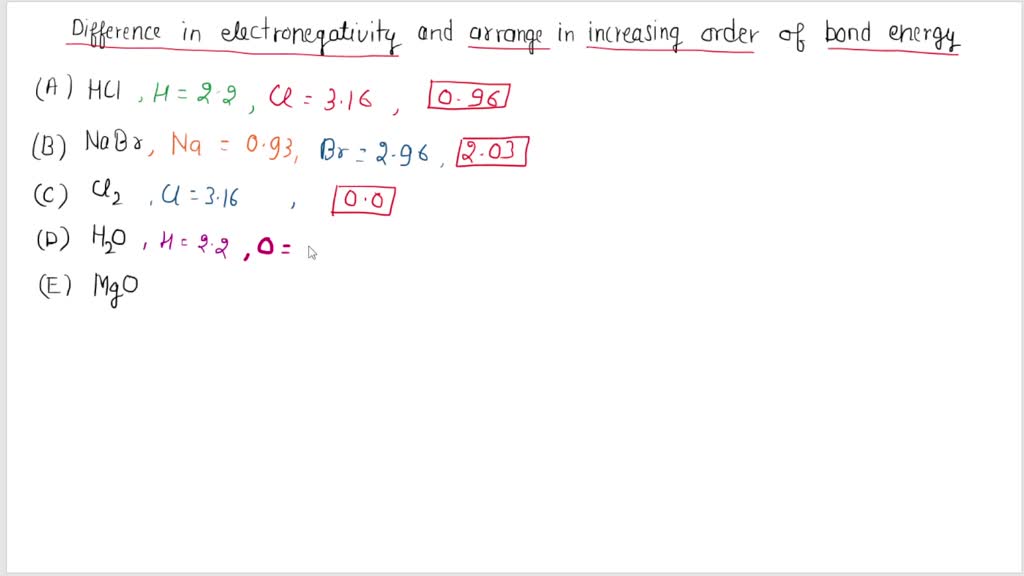 Difference in electronegativity and arrange in increasing order of bond energy
(A) HCl, H = 2.2, Cl = 3.16, 0.96
(B) NaBr, Na = 0.93, Br = 2.96, 2.03
(C) Cl2, Cl = 3.16, 0.0
(D) H2O, H = 2.2, O =
(E) MgO